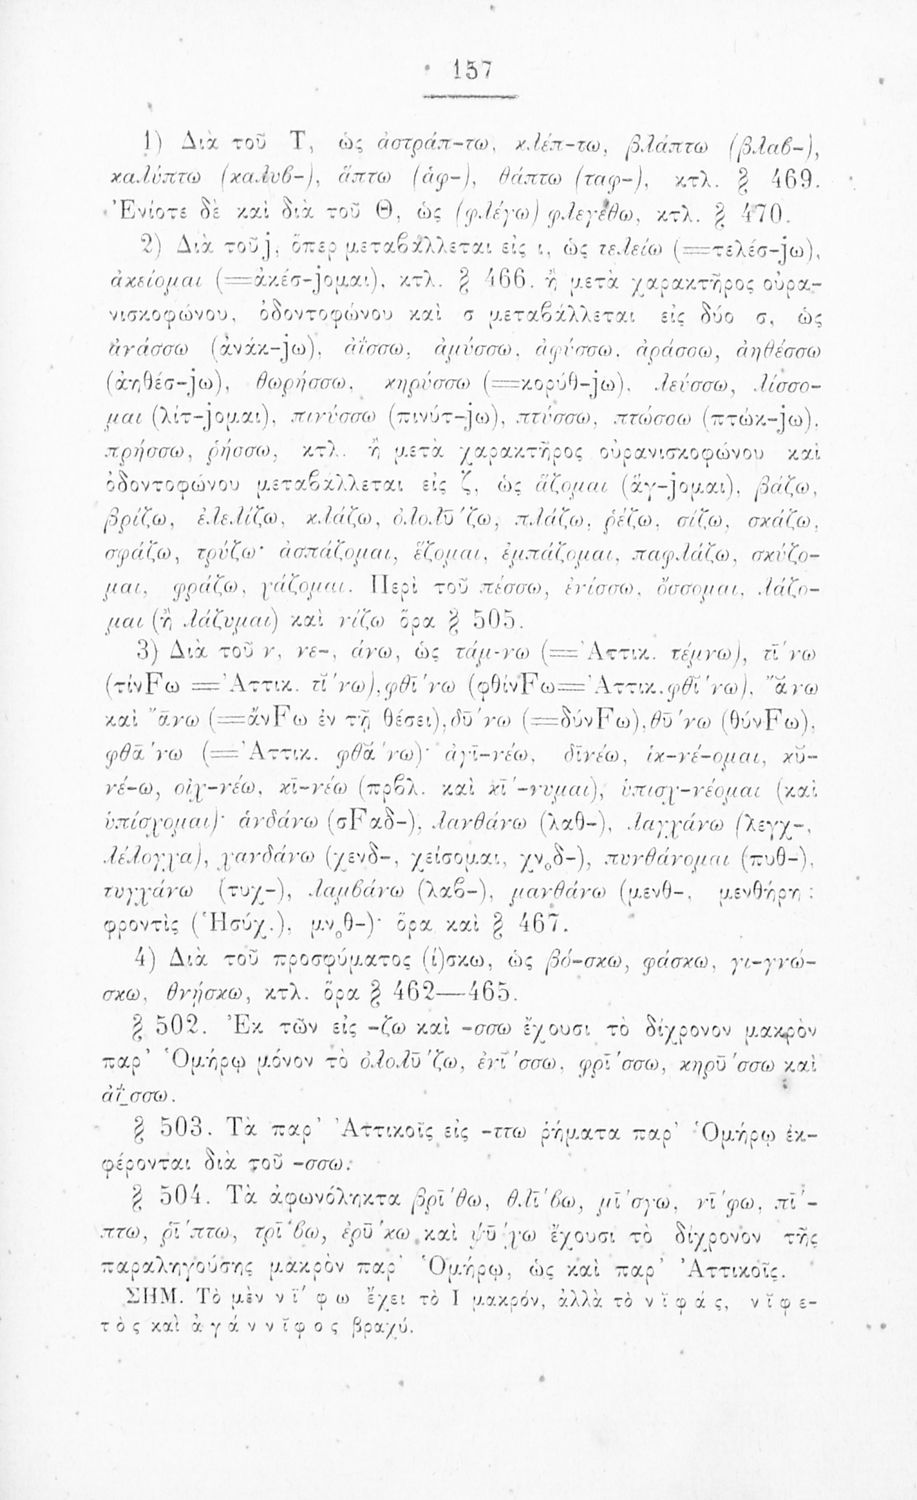 157
1) Διὰ τοῦ Τ, ὡς ἀστράπ-τω, κλέπ-τω, βλάπτω (βλαβ-),
καλύπτω (καλυβ-), ἅπτω (ἁφ-), θάπτω (ταφ-), κτλ. § 469.
Ἐνίοτε δὲ καὶ διὰ τοῦ Θ, ὡς (φλέγω) φλεγέθω, κτλ. § 470.
2) Διὰ τοῦ j, ὅπερ μεταβάλλεται εἰς ι, ὡς τελείω (=τελέσ-jω),
ἀκείομαι (=ἀκέσ-jομαι), κτλ. § 466. ἢ μετὰ χαρακτῆρος οὐρα-
νισκοφώνου, ὀδοντοφώνου καὶ σ μεταβάλλεται εἰς δύο σ, ὡς
ἀνάσσω (ἀνάκ-jω), ἀΐσσω, ἀμύσσω, ἀφύσσω, ἀράσσω, ἀηθέσσω
(ἀηθέσ-jω), θωρήσσω, κηρύσσω (=κορύθ-jω), λεύσσω, λίσσο-
μαι (λίτ-jομαι), πινύσσω (πινύτ-jω), πτύσσω, πτώσσω (πτώκ-jω),
πρήσσω, ῥήσσω, κτλ. ἢ μετὰ χαρακτῆρος οὐρανισκοφώνου καὶ
ὀδοντοφώνου μεταβάλλεται εἰς ζ, ὡς ἅζομαι (ἅγ-jομαι), βάζω,
βρίζω, ἐλελίζω, κλάζω, ὀλολῡ́ζω, πλάζω, ῥέζω, σίζω, σκάζω,
σφάζω, τρύζω· ἀσπάζομαι, ἕζομαι, ἐμπάζομαι, παφλάζω, σκύζο-
μαι, φράζω, χάζομαι. Περὶ τοῦ πέσσω, ἐνίσσω, ὄσσομαι, λάζο-
μαι (ἢ λάζυμαι) καὶ νίζω ὅρα § 505.
3) Διὰ τοῦ ν, νε-, άνω, ὡς τάμ-νω (=Ἀττικ. τέμνω), τῑ́νω
(τίνFω = Ἀττικ. τῐ́νω), φθῑ́νω (φθίνFω=Ἀττικ. φθῐ́νω), ἄ̆νω
καὶ ἄ̄νω (=ἄνFω ἐν τῇ θέσει), δῡ́νω (=δύνFω), θῡ́νω (θύνFω),
φθᾱ́νω (=Ἀττικ. φθᾰ́νω)· ἀγῑ-νέω, δῑνέω, ἱκ-νέ-ομαι, κῠ-
νέ-ω, οἰχ-νέω, κῑ-νέω (πρβλ. καὶ κῑ́-νυμαι), ὑπισχ-νέομαι (καὶ
ὑπίσχομαι)· ἁνδάνω (σFαδ-), λανθάνω (λαθ-), λαγχάνω (λεγχ-,
λέλογχα), χανδάνω (χενδ-, χείσομαι, χν̥δ-), πυνθάνομαι (πυθ-),
τυγχάνω (τυχ-), λαμβάνω (λαβ-), μανθάνω (μενθ-, μενθήρη :
φροντὶς (Ἡσύχ.), μν̥θ-)· ὅρα καὶ § 467.
4) Διὰ τοῦ προσφύματος (ί)σκω, ὡς βό-σκω, φάσκω, γι-γνώ-
σκω, θνῄσκω, κτλ. ὅρα § 462—465.
§ 502. Ἐκ τῶν εἰς -ζω καὶ -σσω ἔχουσι τὸ δίχρονον μακρὸν
παρ' Ὁμήρῳ μόνον τὸ ὀλολῡ́ζω, ἐνῑ́σσω, φρῑ́σσω, κηρῡ́σσω καὶ
ἀΐ_σσω.
§ 503. Τὰ παρ' Ἀττικοῖς εἰς -ττω ῥήματα παρ' Ὁμήρῳ ἐκ-
φέρονται διὰ τοῦ -σσω.
§ 504. Τὰ ἀφωνόληκτα βρῑ́θω, θλῑ́βω, μῑ́σγω, νῑ́φω, πῑ́-
πτω, ῥῑ́πτω, τρῑ́βω, ἐρῡ́κω καὶ ψῡ́χω ἔχουσι τὸ δίχρονον τῆς
παραληγούσης μακρὸν παρ' Ὁμήρῳ, ὡς καὶ παρ' Ἀττικοῖς.
ΣΗΜ. Τὸ μὲν νῑ́φω ἔχει τὸ Ι μακρόν, ἀλλὰ τὸ νῐφάς, νῐφε-
τὸς καὶ ἀγάννῐφος βραχύ.